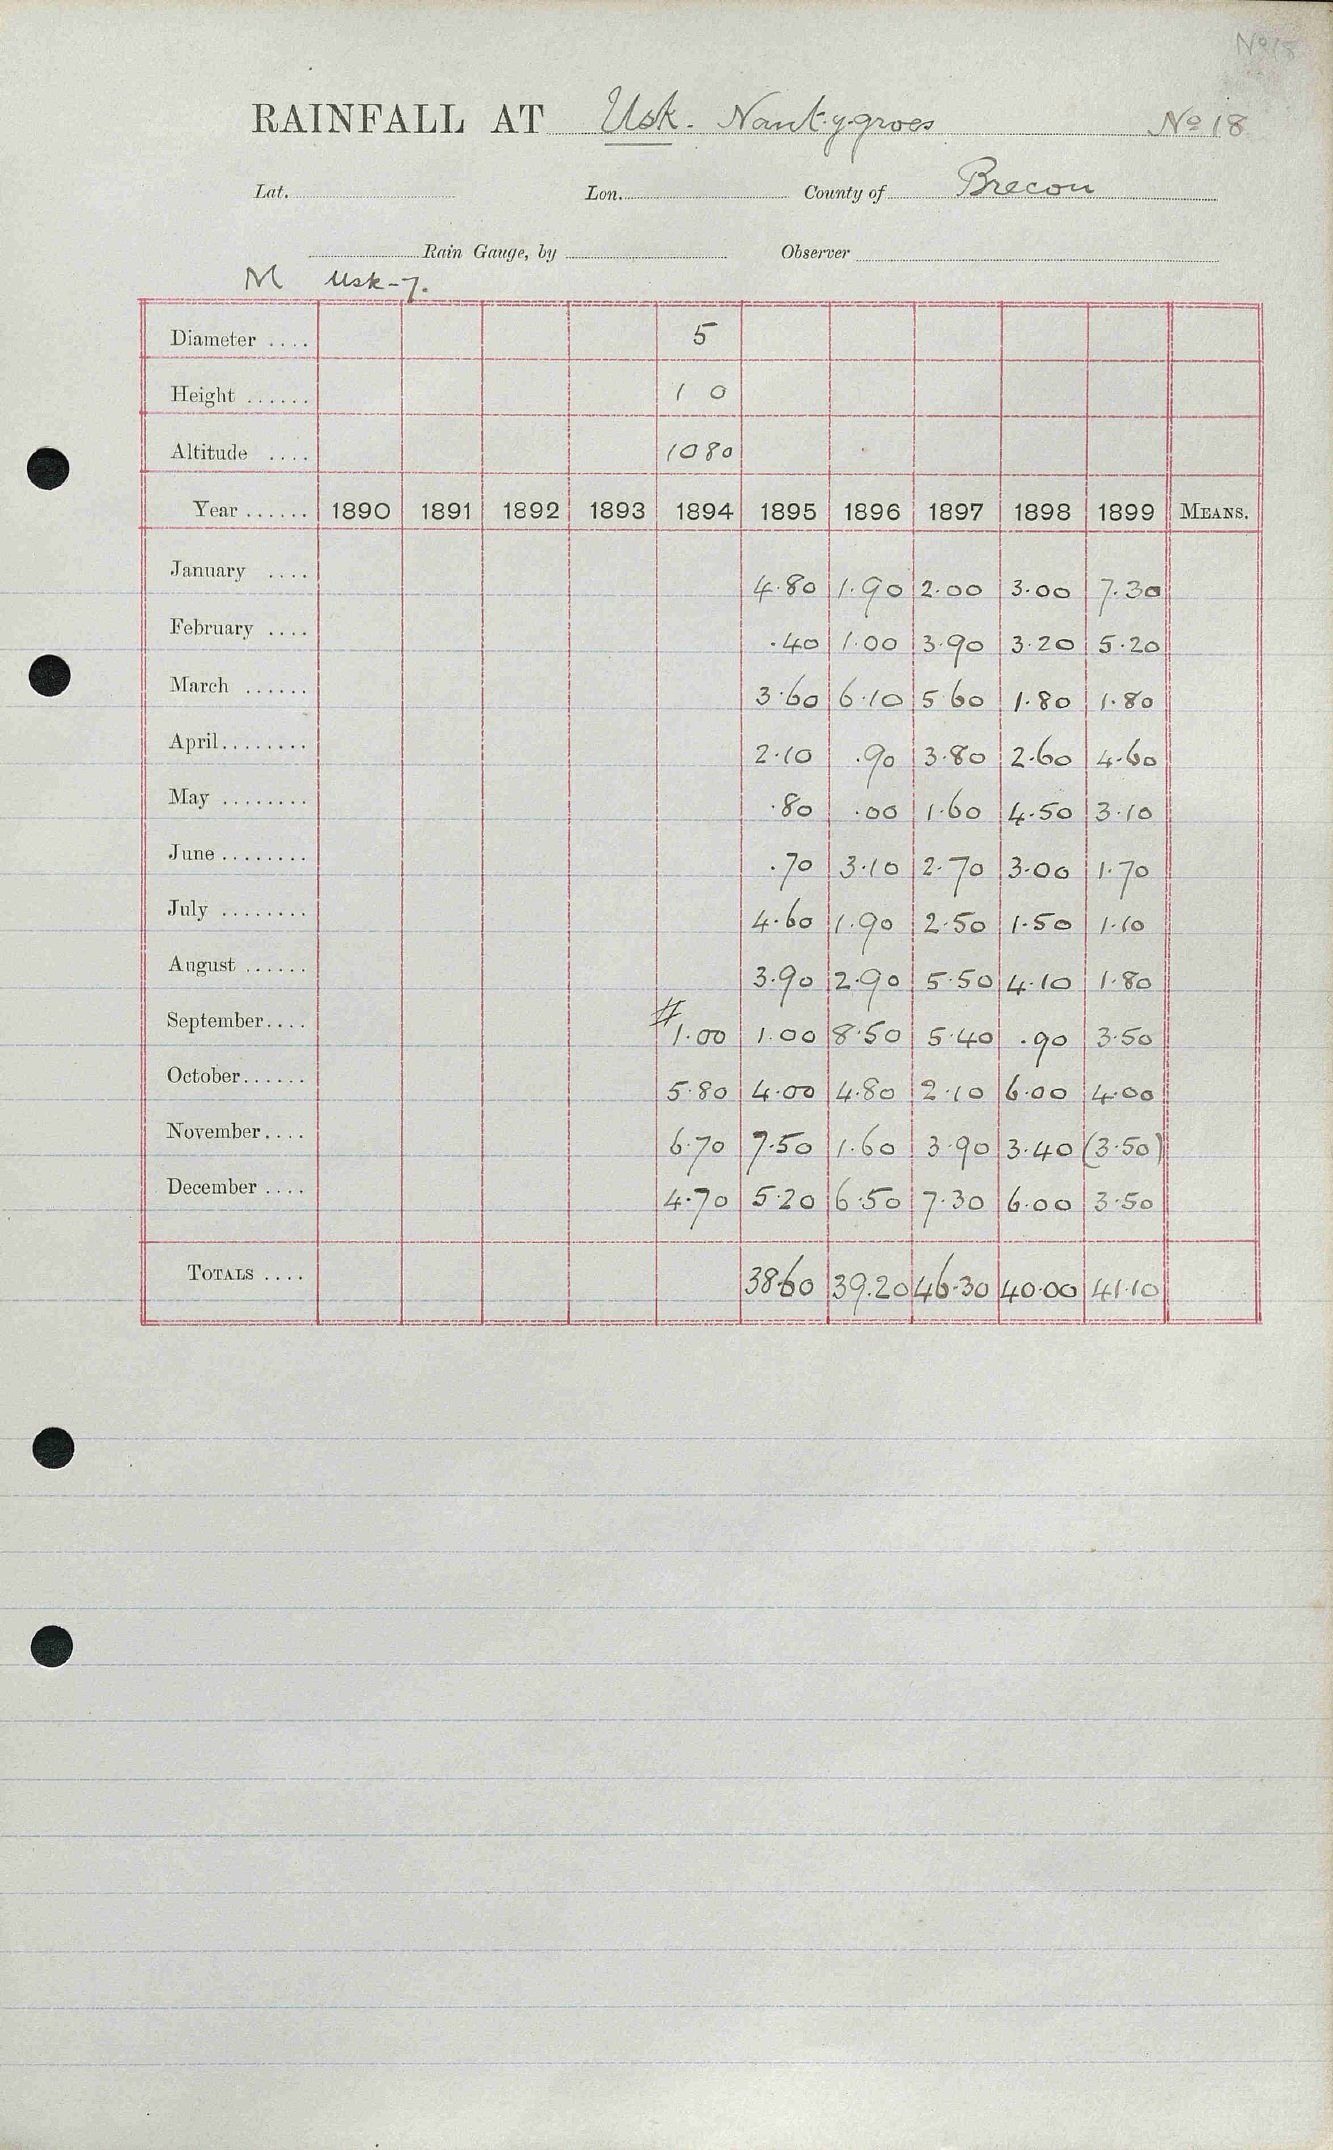 No 18
RAINFALL AT Usk. Nant-y-groes No 18
Lat. Lon. County of Brecon
Rain Gauge, by Observer
M Usk-7.
Diameter .... 5
Height ...... 1 0
Altitude .... 1080
Year ...... 1890 1891 1892 1893 1894 1895 1896 1897 1898 1899 MEANS.
January .... 4.80 1.90 2.00 3.00 7.30
February .... .40 1.00 3.90 3.20 5.20
March ...... 3.60 6.10 5.60 1.80 1.80
April........ 2.10 .90 3.80 2.60 4.60
May ........ .80 .00 1.60 4.50 3.10
June ........ .70 3.10 2.70 3.00 1.70
July ........ 4.60 1.90 2.50 1.50 1.10
August ...... 3.90 2.90 5.50 4.10 1.80
September.... #1.00 1.00 8.50 5.40 .90 3.50
October...... 5.80 4.00 4.80 2.10 6.00 4.00
November.... 6.70 7.50 1.60 3.90 3.40 (3.50)
December .... 4.70 5.20 6.50 7.30 6.00 3.50
TOTALS .... 38.60 39.20 46.30 40.00 41.10